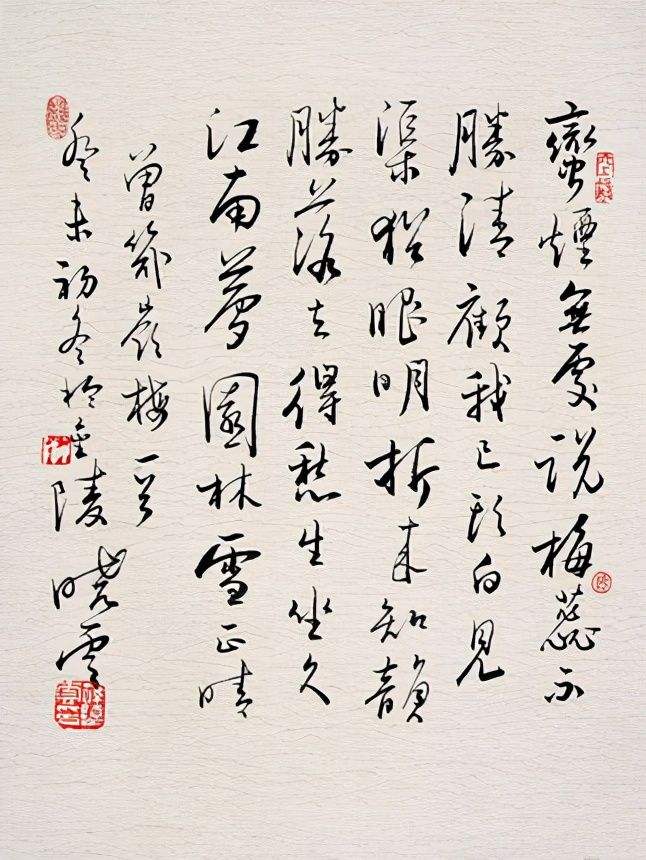 蠻煙無處説梅蕊不
勝清顧我已頭白見
渠猶眼明折來知韻
勝落去得愁生坐久
江南夢園林雪正晴
曾幾嶺梅一首
癸未初冬於金陵曉雲